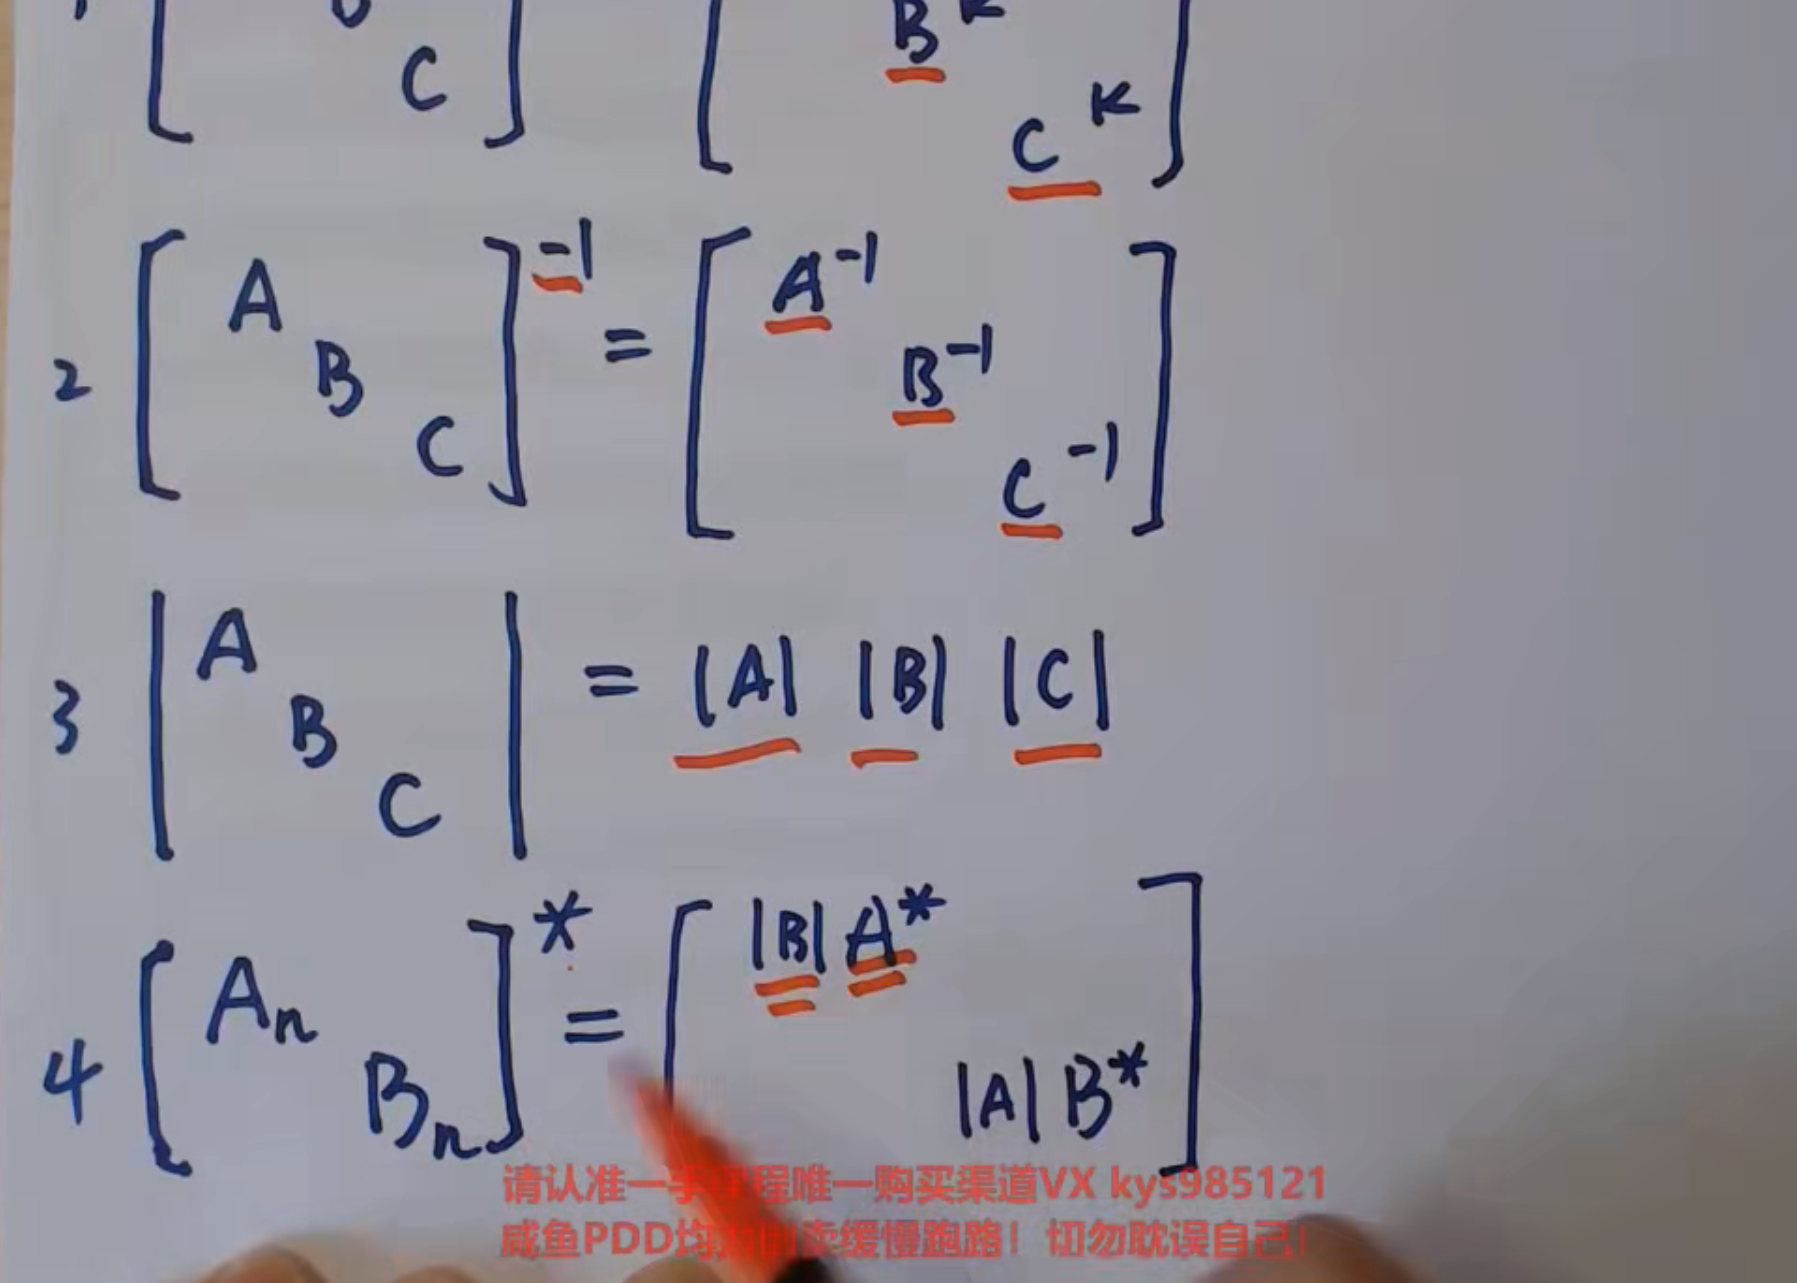 C
B^k
C^k
2 [A B C]^-1 = [A^-1 B^-1 C^-1]
3 |A B C| = |A| |B| |C|
4 [A_n B_n]^* = [|B|A^* |A|B^*]
请认准一手 程唯一购买渠道VX kys985121
咸鱼PDD均 卖缓慢跑路！切勿耽误自己！